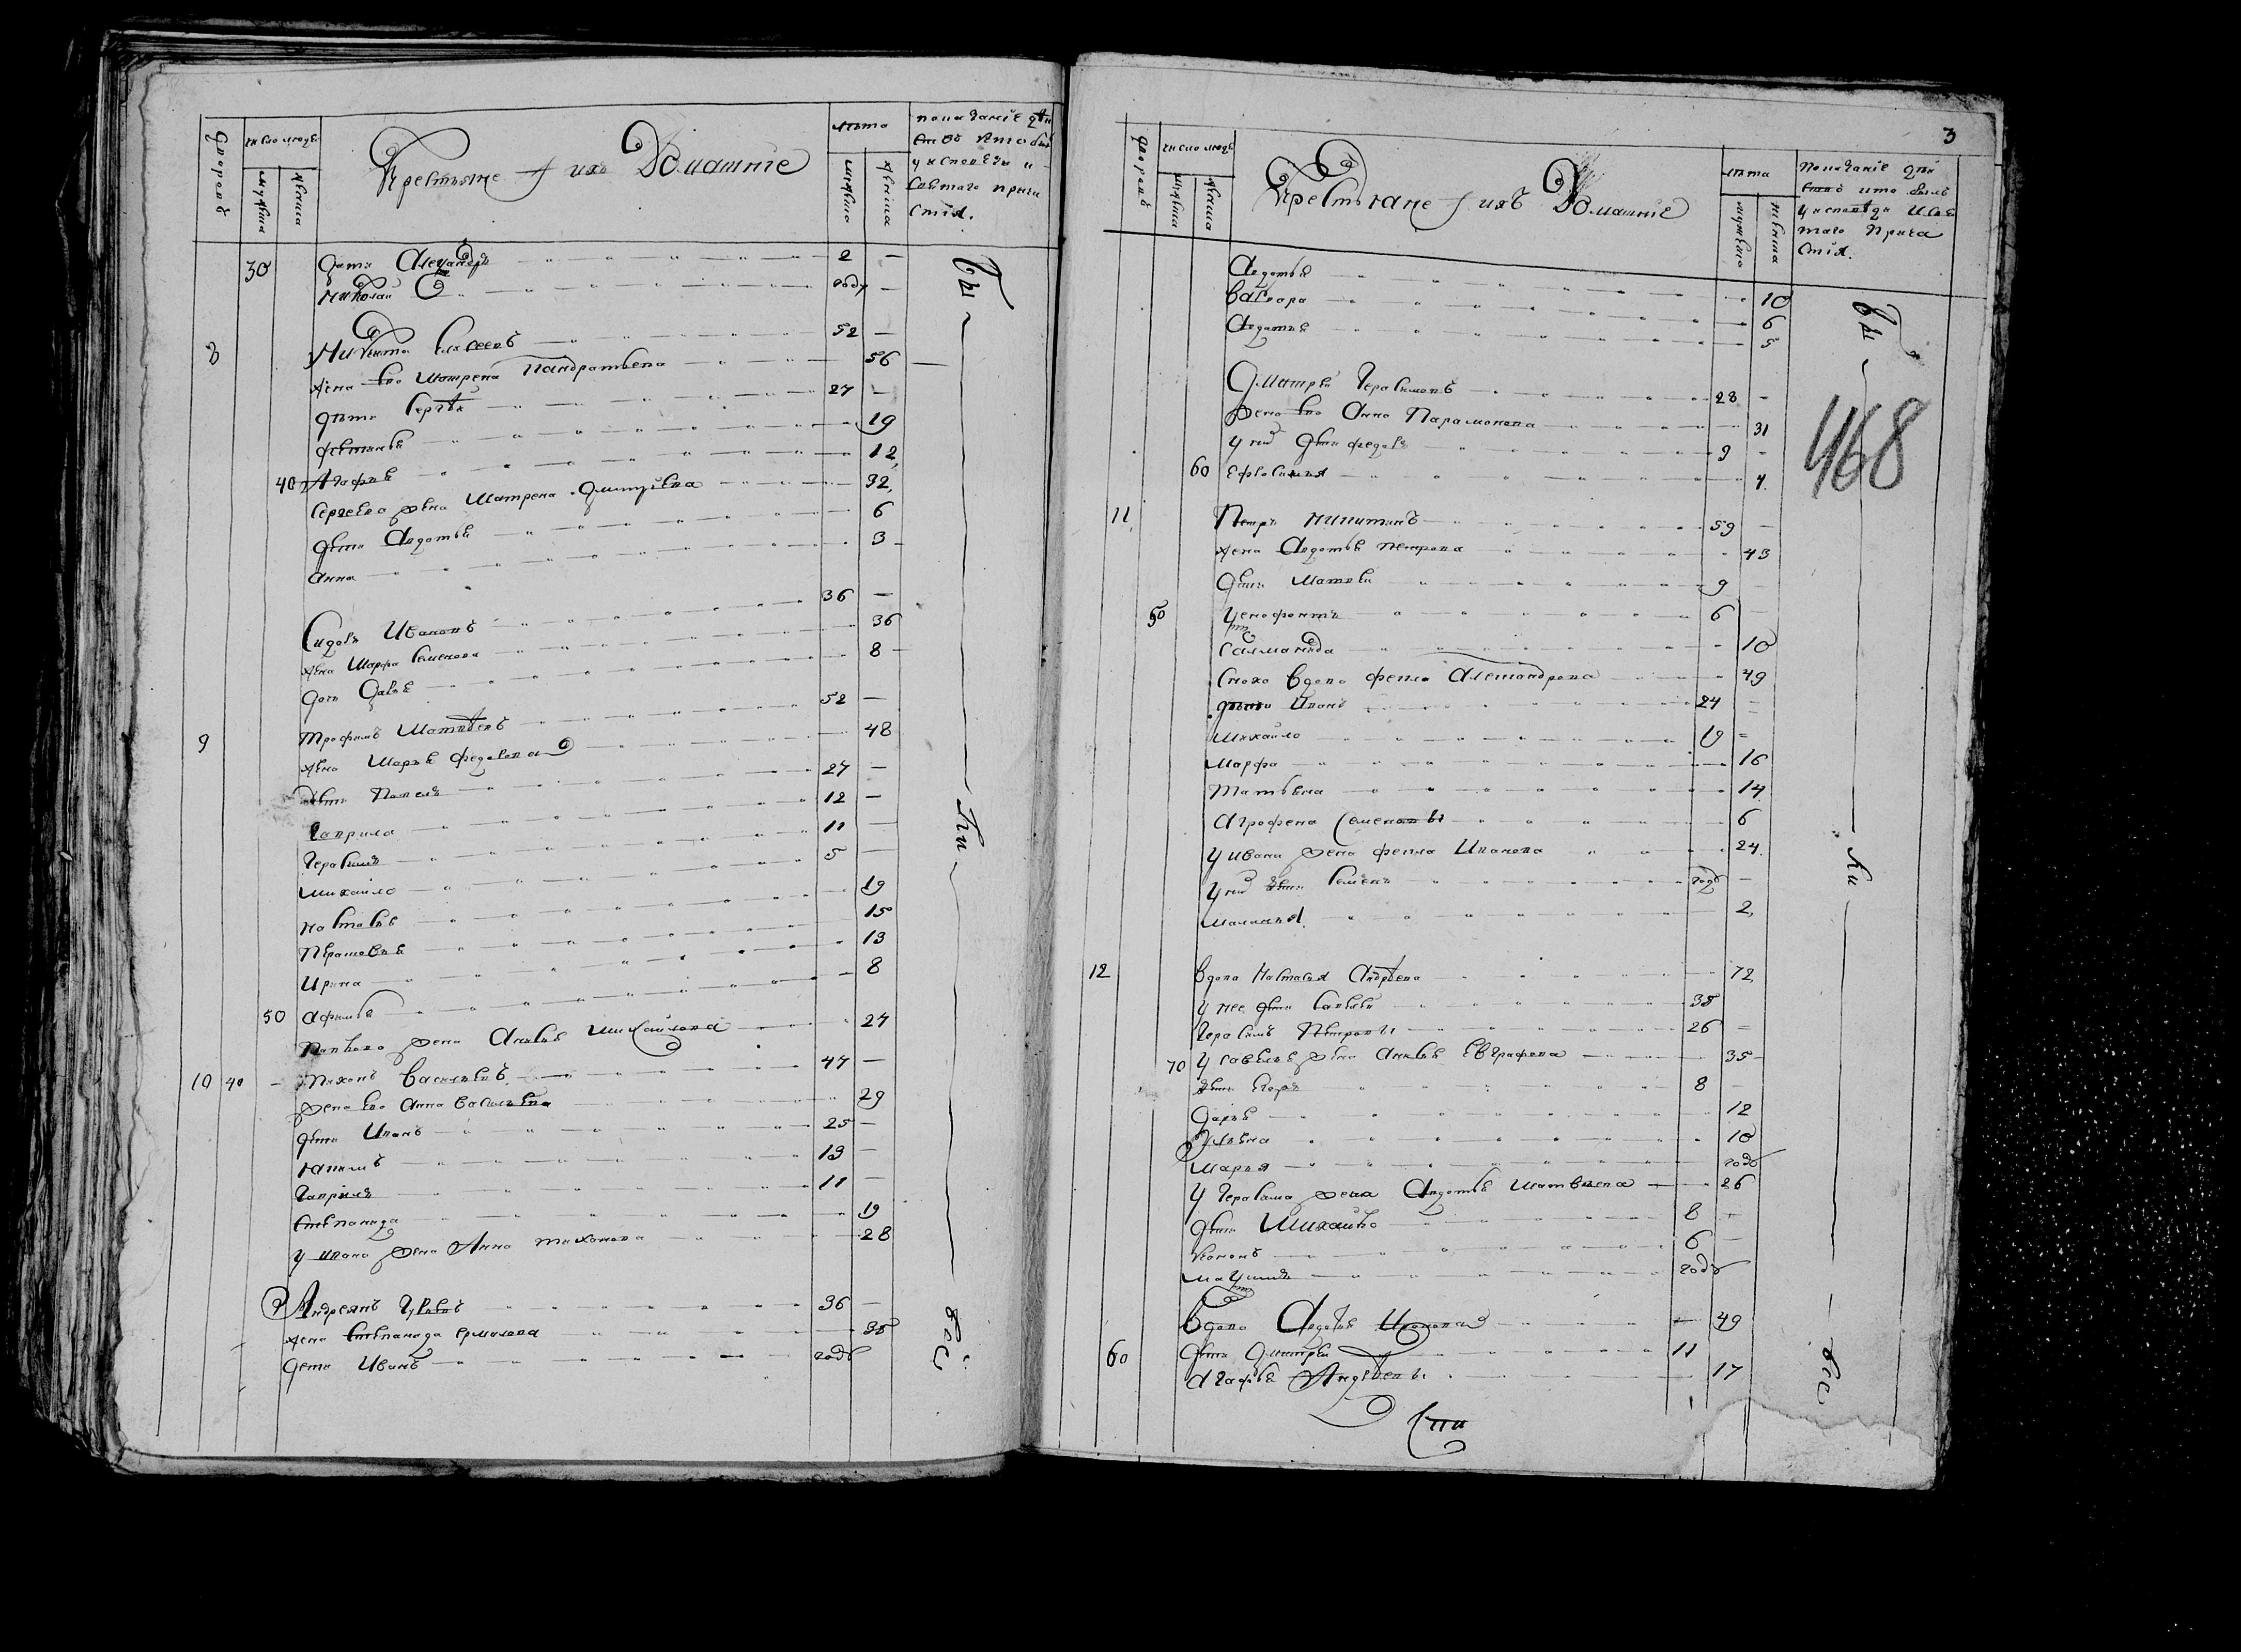 дворовъ
число людей
мужеска
женска
Крестьяне и ихъ Домашніе
лѣта
мужеска
женска
показаніе дѣйствъ кто былъ у исповеди и святаго причастія.
30 дети Алеѯандръ 2 —
Николай году —
8 Никита Елисеевъ 52 —
жена ево Матрена Кандратьева 56 —
дѣти Сергѣй 27 —
19
40 Агафья 12
Сергеева жена Матрена Дмитріева 32
дѣти Авдотья 6
Анна 3
Сидоръ Ивановъ 36 —
жена Марфа Семенова 36
дочь Дарья 8
9 Трофимъ Матвѣевъ 52 —
жена Марья Федорова 48
дѣти Павелъ 27 —
Гаврила 12 —
Герасимъ 11 —
Михайло 5 —
Настасья 19
Парасковья 15
Ирина 13
50 Афимья 8
Павлова жена Анисья Михайлова 27
10 40 — Тихонъ Васильевъ 47 —
жена ево Анна Васильева 29
дѣти Иванъ 25 —
Іакимъ 13 —
Гаврила 11 —
Степанида 19
у ивана жена Анна Тихонова 28
Андреянъ 36 —
жена Степанида Ермолова 38
дети Иванъ годъ
Бы — ли — все
3
дворовъ
число людей
мужеска
женска
Крестьяне и ихъ Домашніе
лѣта
мужеска
женска
Показаніе дѣйствъ кто былъ у исповѣди и святаго Прича
стія.
Авдотья 10
Варвара 6
Авдотья 5
Дмитрей Герасимовъ 28 —
жена ево Анна Парамонова 31
у них дѣти Федоръ 9 —
60 Ефросинья 4
468
11 Петръ Никитинъ 59 —
жена Авдотья Петрова 43
дѣти Матвѣй 9 —
50 Ѯенофонтъ 6 —
10
Сноха вдова Фекла Алеѯандрова 49
дѣти Иванъ 24 —
Михайло 19 —
Марфа 16
Татьяна 14
Аграфена Семеновы 6
у ивана жена Фекла Иванова 24
у них дѣти Семенъ годъ —
2
12 Вдова Настасья Андрѣева 72
у нее дѣти Савелѣй 38
Герасимъ Петровы 26 —
70 у савелья жена Анисья Евграфова 35
дѣти Егоръ 8 —
Дарья 12
Ульяна 10
Марья годъ
у Герасима жена Авдотья Матвѣева 26
дѣти Михайло 8 —
6 —
Маѯимъ годъ
Вдова Авдотья 49
60 дѣти Дмитрей 11
Агафья Андрѣевы 17
Бы — ли — все